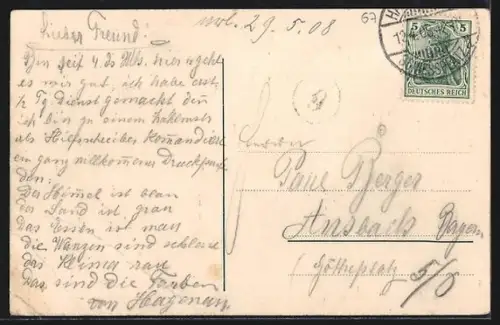 Lieber Freund!
erh. 29.5.08
67
Bin seit 4. ds Mts. hier u. geht
es mir gut, ich habe erst
Tg Dienst gemacht denn
ich bin zu einem Zahlmstr
als Hilfsschreiber Kommandiert
ein ganz willkommener
den:
Der Himmel ist blau
der Sand ist grau
Das Essen ist mau
die Wanzen sind schlau
das Klima rau
Das sind die Farben
von Hagenau
5
DEUTSCHES REICH
Herrn
Paul Berger
Ansbach Bayern
Götheplatz 5/0